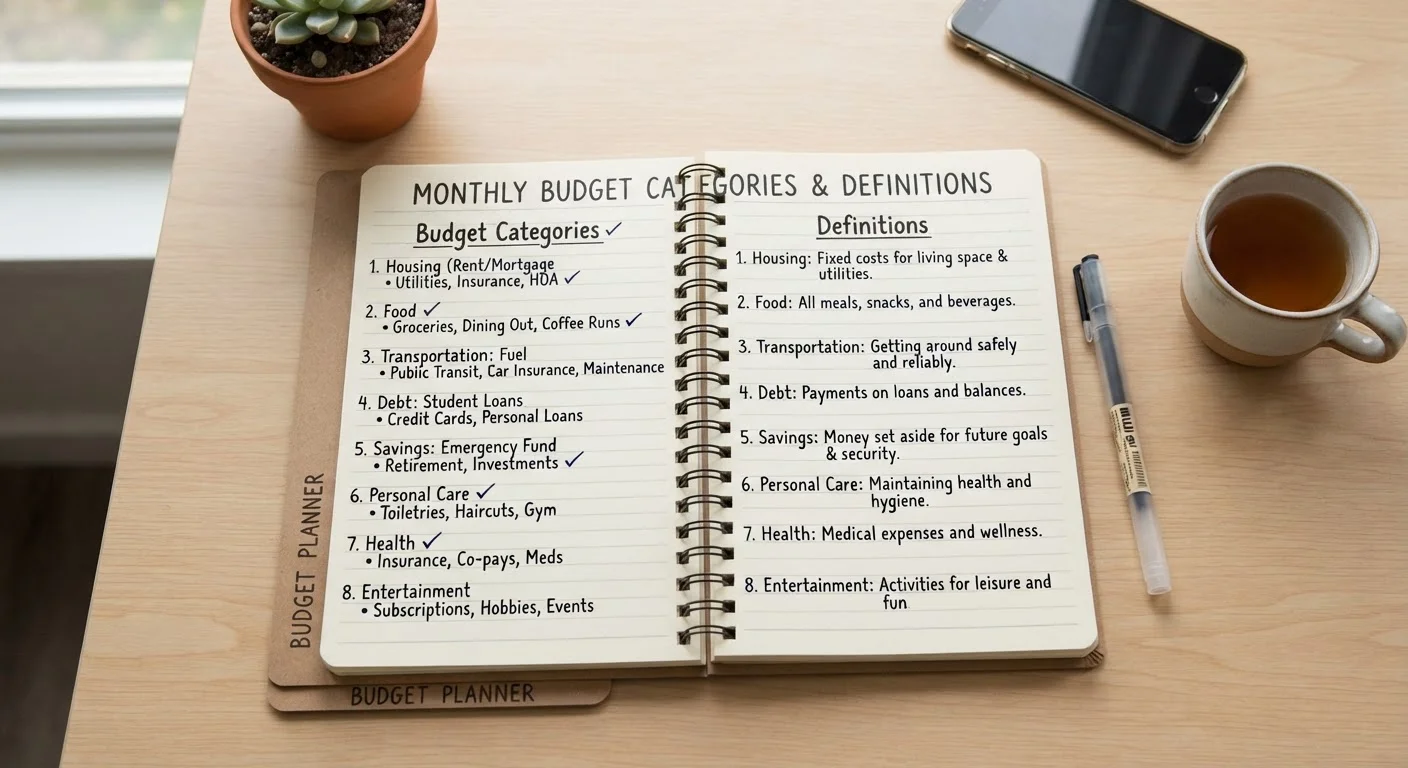 MONTHLY BUDGET CATEGORIES & DEFINITIONS
Budget Categories ✓
1. Housing (Rent/Mortgage
• Utilities, Insurance, HOA ✓
2. Food ✓
• Groceries, Dining Out, Coffee Runs ✓
3. Transportation: Fuel
• Public Transit, Car Insurance, Maintenance
4. Debt: Student Loans
• Credit Cards, Personal Loans
5. Savings: Emergency Fund
• Retirement, Investments ✓
6. Personal Care ✓
• Toiletries, Haircuts, Gym
7. Health ✓
• Insurance, Co-pays, Meds
8. Entertainment
• Subscriptions, Hobbies, Events
Definitions
1. Housing: Fixed costs for living space &
utilities.
2. Food: All meals, snacks, and beverages.
3. Transportation: Getting around safely
and reliably.
4. Debt: Payments on loans and balances.
5. Savings: Money set aside for future goals
& security.
6. Personal Care: Maintaining health and
hygiene.
7. Health: Medical expenses and wellness.
8. Entertainment: Activities for leisure and
fun
BUDGET PLANNER
BUDGET PLANNER